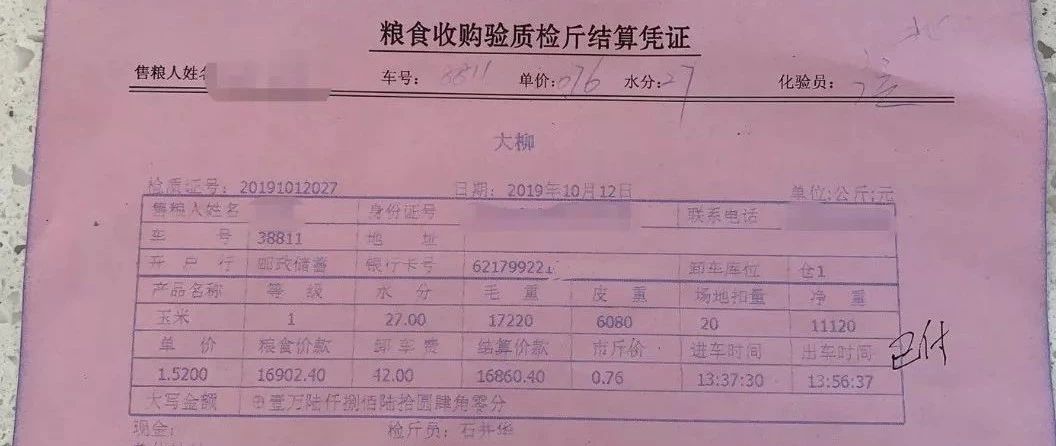 粮食收购验质检斤结算凭证
售粮人姓名 车号: 8811 单价: 076 水分: 27 化验员:
大柳
检质证号: 20191012027 日期: 2019年10月12日 单位:公斤;元
售粮人姓名 身份证号 联系电话
车 号 38811 地 址
开 户 行 邮政储蓄 银行卡号 62179922 卸车库位 仓1
产品名称 等 级 水 分 毛 重 皮 重 场地扣量 净 重
玉米 1 27.00 17220 6080 20 11120
单 价 粮食价款 卸 车 费 结算价款 市斤价 进车时间 出车时间 已付
1.5200 16902.40 42.00 16860.40 0.76 13:37:30 13:56:37
大写金额 ⊕壹万陆仟捌佰陆拾圆肆角零分
现金: 检斤员: 石井华